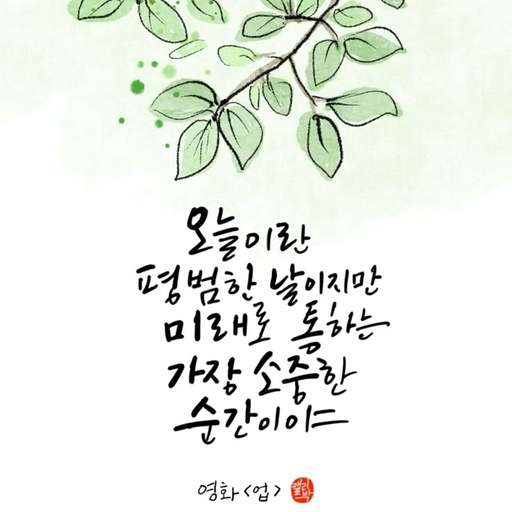 오늘이란
평범한 날이지만
미래로 통하는
가장 소중한
순간이야
영화 <업>
캘리박